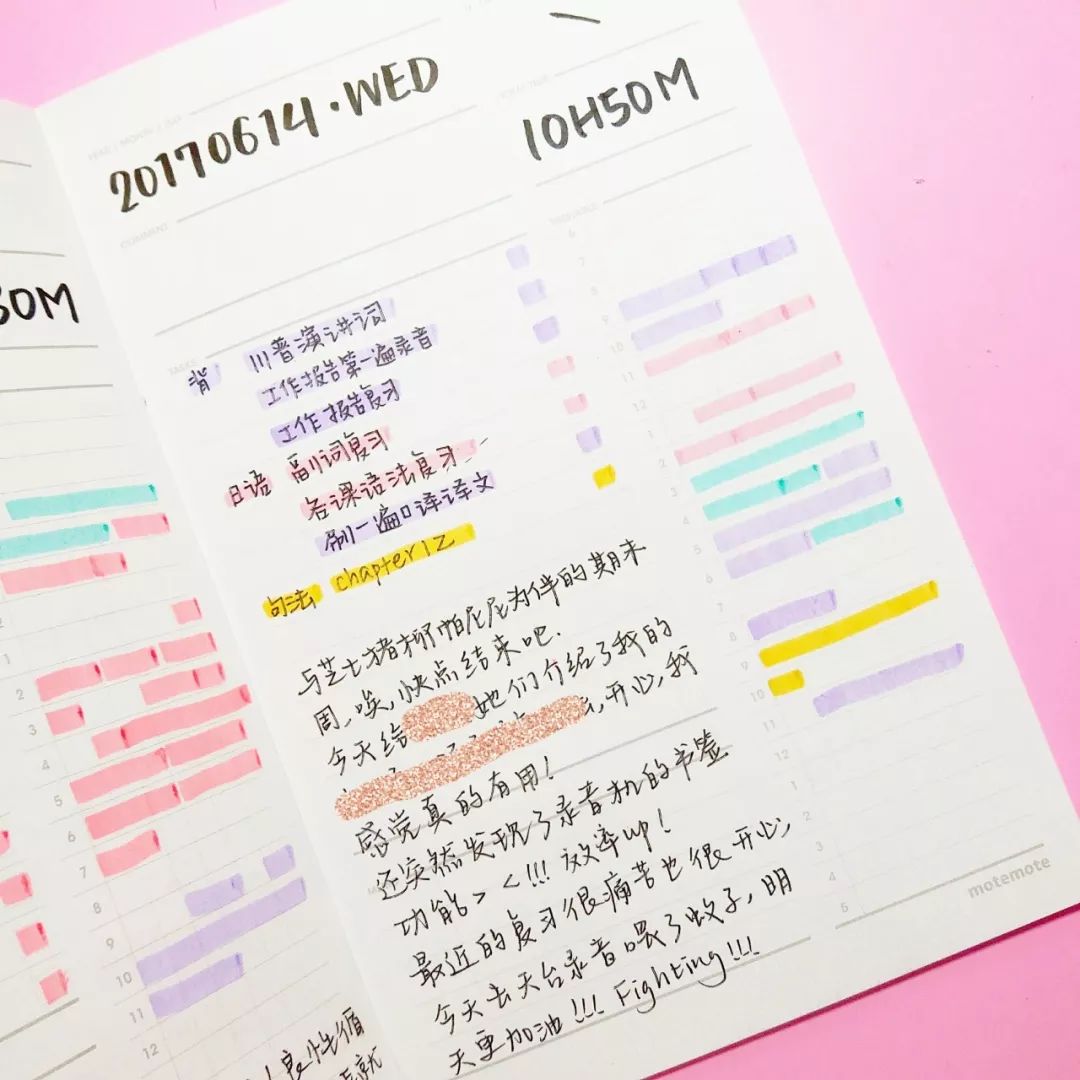 20170614·WED
10H50M
30M
YEAR / MONTH / DAY
TOTAL TIME
COMMENT
TASKS
TIMETABLE
背 川普演讲词
工作报告第一遍录音
工作报告复习
日语 副词复习
各课语法复习
刷一遍口译译文
句法 chapter12
与芝士猪柳帕尼尼为伴的期末
周,唉,快点结束吧.
今天给 她们介绍了我的
开心,我
感觉真的有用!
还突然发现了录音机的书签
功能> <!!! 效率up!
最近的复习很痛苦也很开心,
今天去天台录音喂了蚊子,明
天更加油!!! Fighting!!!
6
7
8
9
10
11
12
1
2
3
4
5
6
7
8
9
10
11
12
1
2
3
4
5
motemote
1
2
3
4
5
6
7
8
9
10
11
12